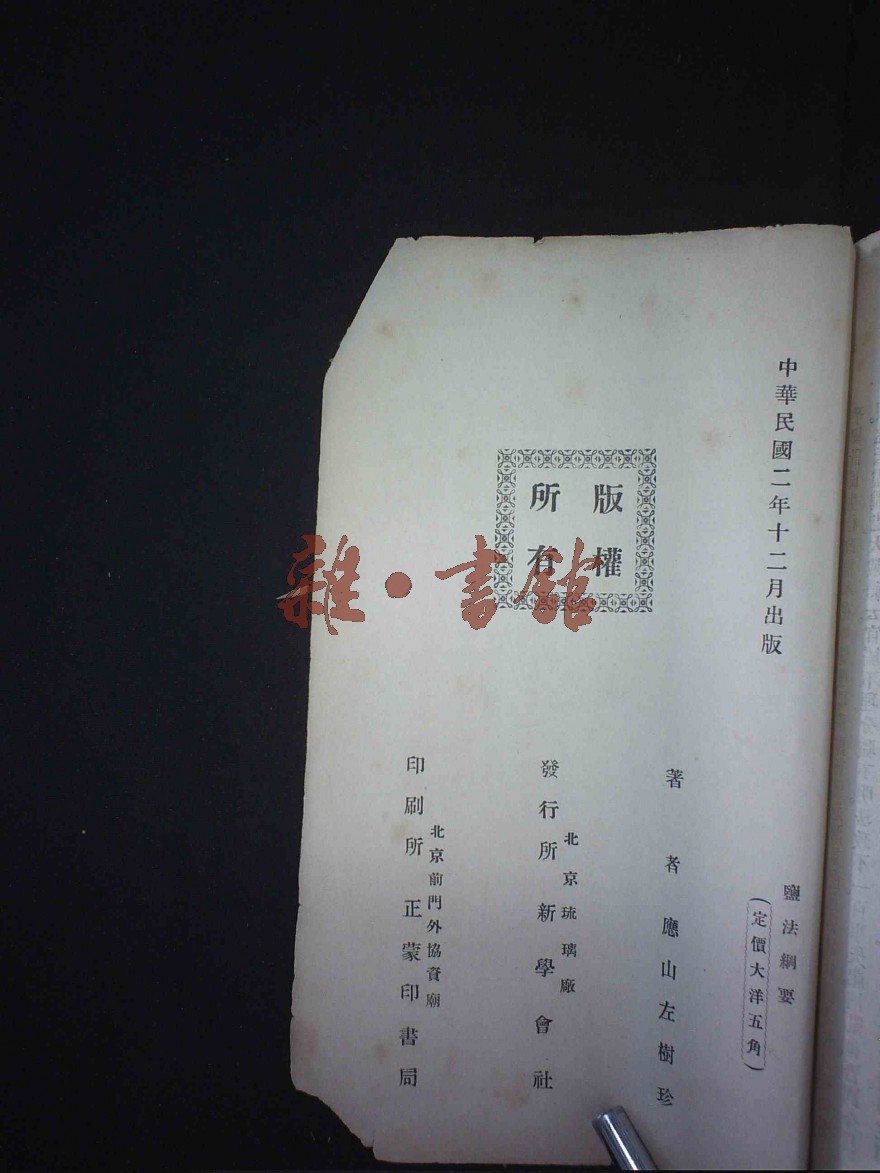 中華民國二年十二月出版
鹽法綱要
(定價大洋五角)
版權
所有
著者應山左樹珍
北京琉璃廠
發行所新學會社
北京前門外協資廟
印刷所正蒙印書局
雜·書館